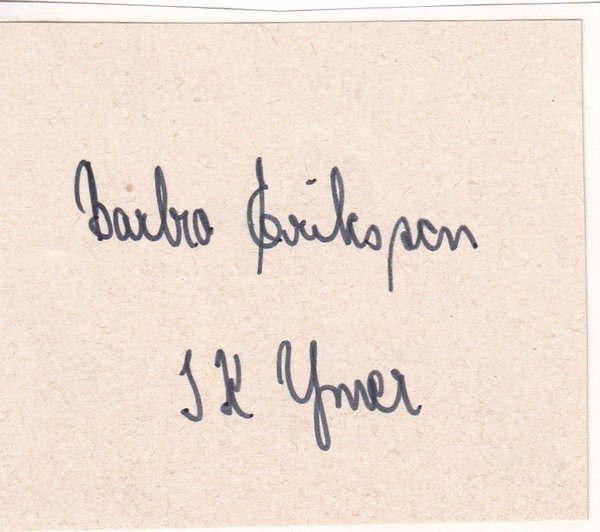 Barbro Eriksson
IK Ymer